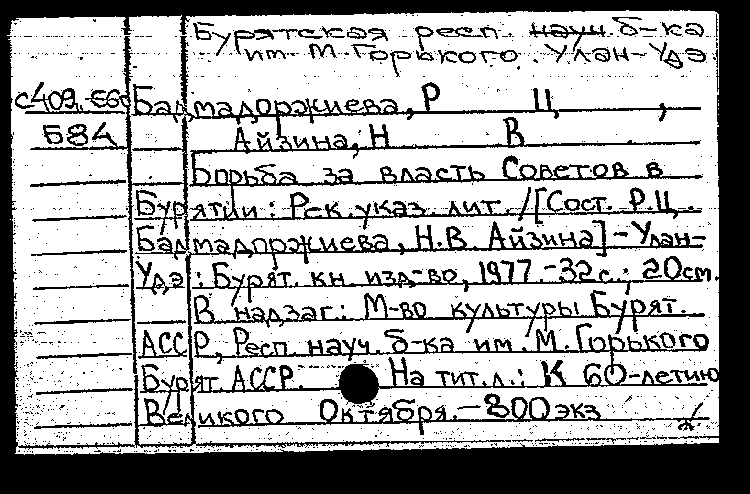 Бурятская респ. науч б-ка
им. М. Горького. Улан-Удэ
с409.
Бадмадоржиева, Р Ц ,
584
Айзина, Н В
Борьба за власть Советов в
Бурятии: Рек. указ. лит. /[Сост. Р.Ц.
Бадмадоржиева, Н.В. Айзина]-Улан-
Удэ: Бурят. кн. изд-во, 1977.-32с.; 20см.
В надзаг.: М-во культуры Бурят.
АССР, Респ. науч. б-ка им. М. Горького
Бурят. АССР. На тит.л.: К 60-летию
Великого Октября.-800экз